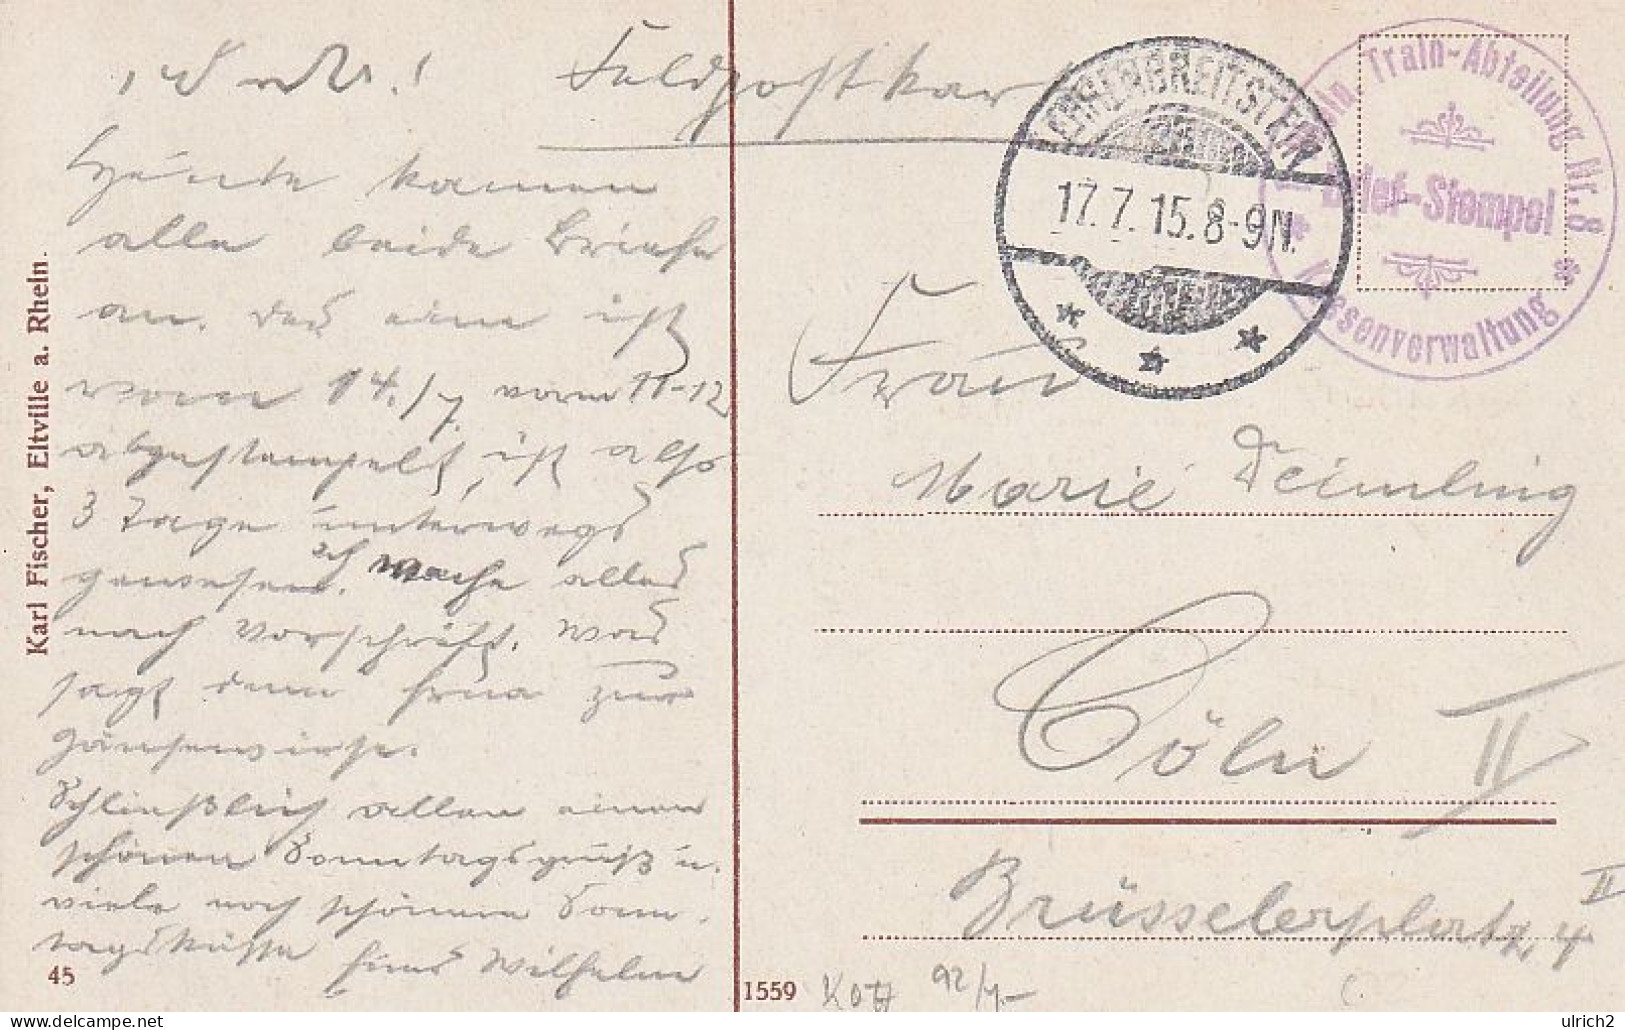 Feldpostkar
Heute kamen
alle beide Briefe
an. Das eine ist
vom 14./7. vorm 11-12
abgestempelt, ist also
3 Tage unterwegs
gewesen. Ich mache alles
nach Vorschrift. Was
sagt denn Erna zur
Gänsewirse.
Schließlich allen einen
schönen Sonntagsgruß u.
viele noch schönere Sonn-
tagsküsse Euer Wilhelm
Karl Fischer, Eltville a. Rhein.
45
1559
EHRENBREITSTEIN
17.7.15.8-9N.
Train-Abteilung Nr. 8
Brief-Stempel
Kassenverwaltung
Frau
Marie Deimling
Cöln II
Brüsselerplatz 4 II
92/4.-
ulrich2